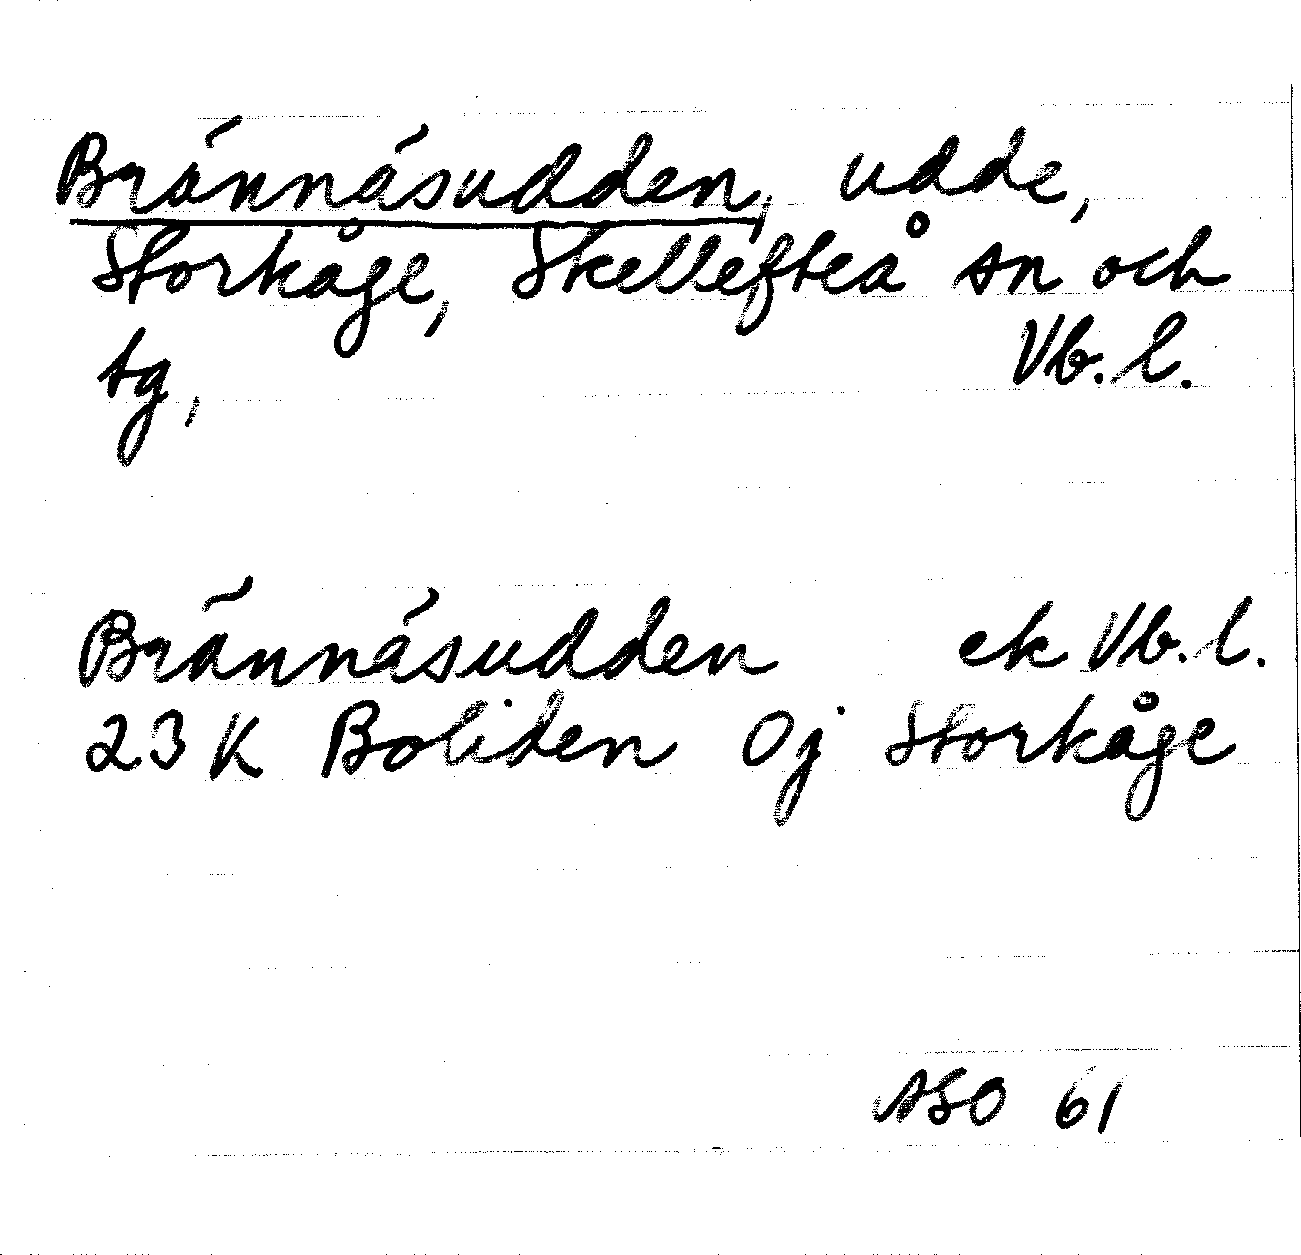 Brännäsudden, udde,
Storkåge, Skellefteå sn och
tg, Vb. l.
Brännäsudden ek Vb. l.
23 K Boliden Oj Storkåge
ASO 61